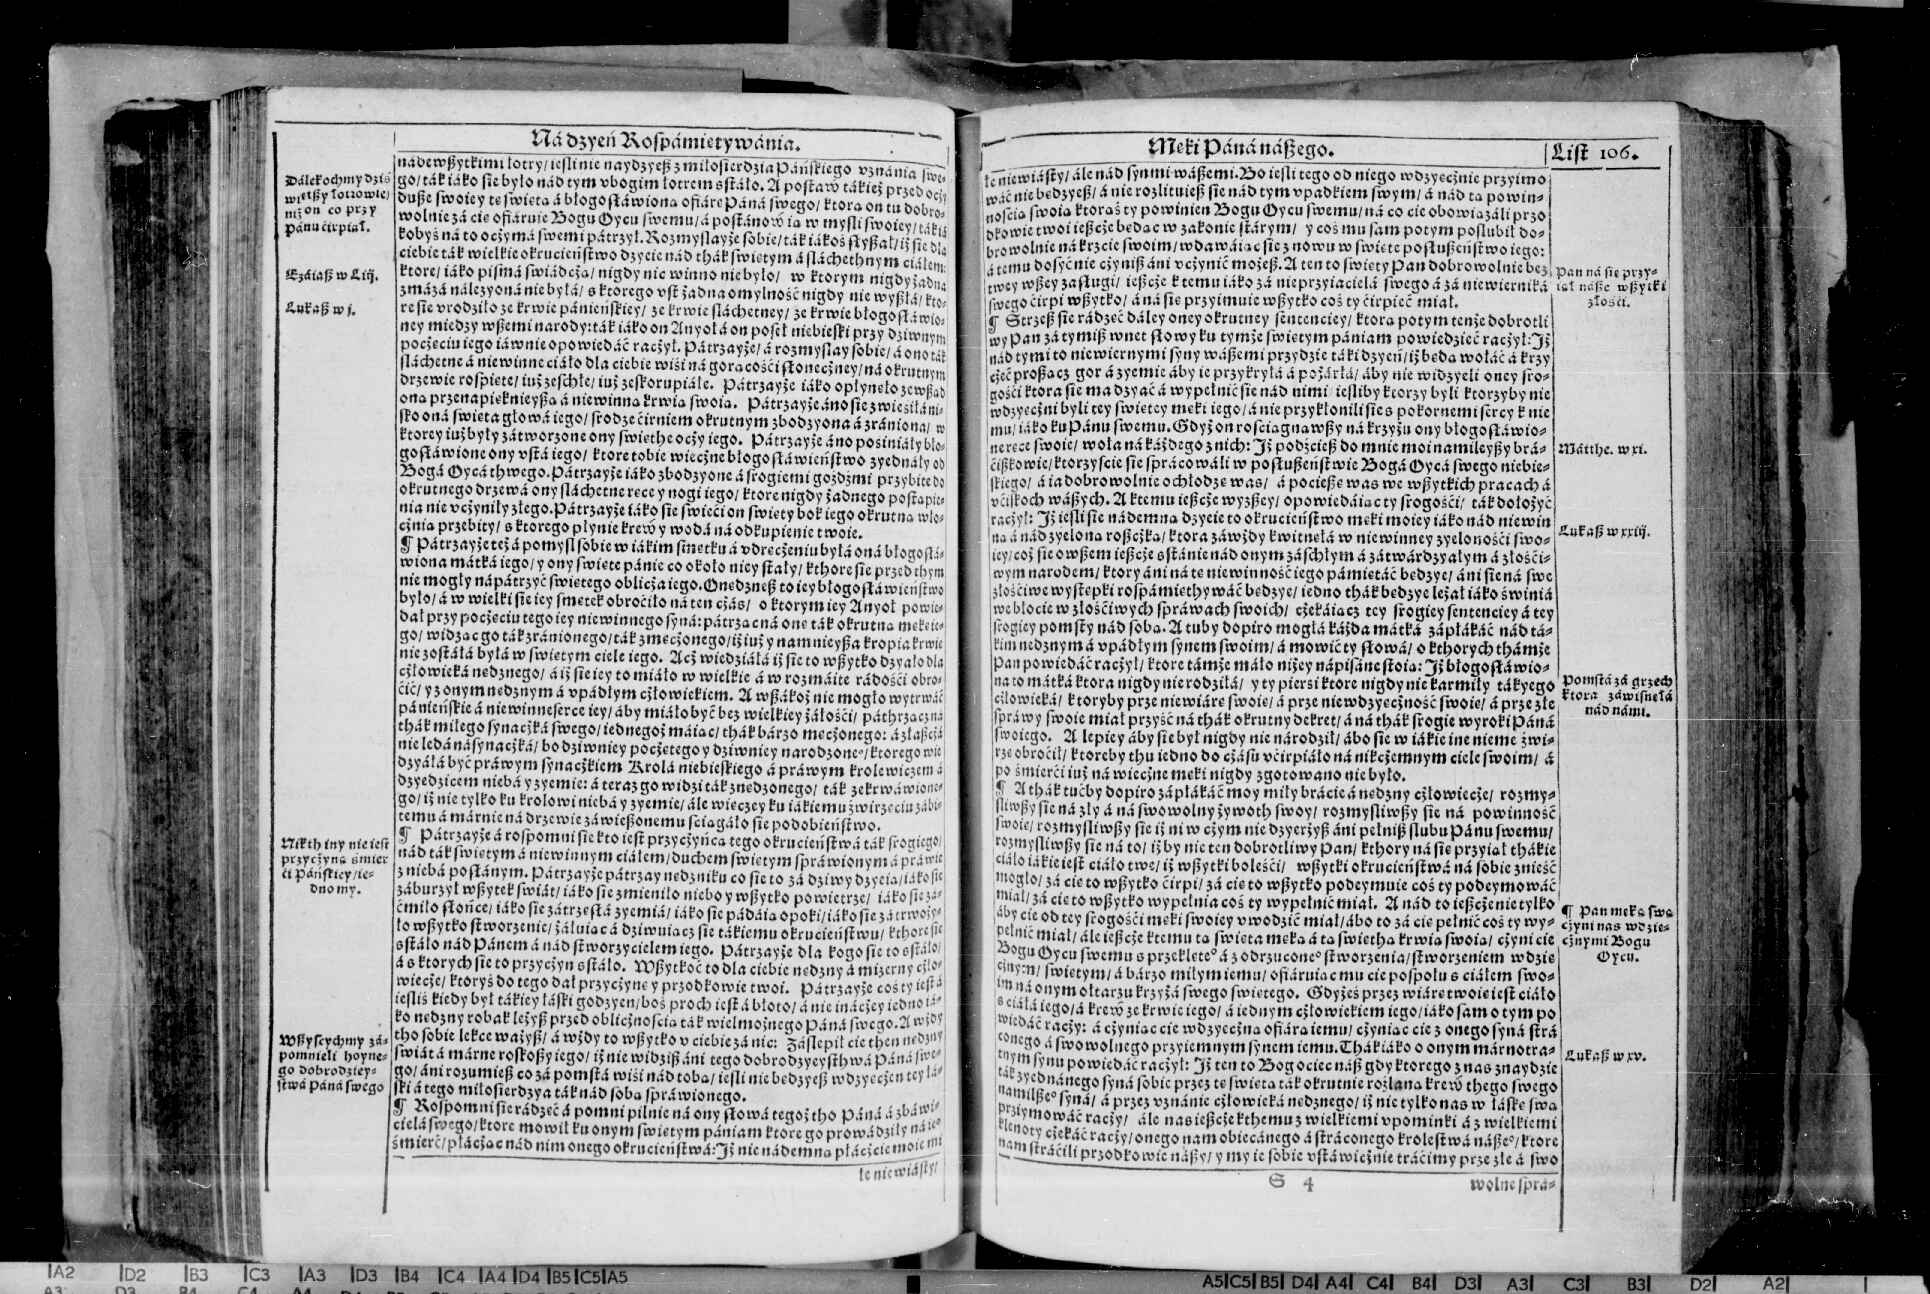 Ná dzyeń Rospámietywánia.
Dálekochmy dziś
więtßy łotrowie/
niż on co przy
Pánu cirpiał.
Ezáiaß w Liij.
Lukaß w j.
Nikth iny nie iest
przyczyną śmier
ci Páńskiey/ ie-
dno my.
Wßyscychmy zá-
pomnieli hoyne-
go dobrodziey-
stwá Páná swego
nádewßytkimi łotry/ iesli nie naydzyeß z miłosierdzia Páńskiego vznánia swe-
go/ ták iáko sie było nád tym vbogim łotrem sstáło. A postaw tákież przed oczy
duße swoiey tę swietą á błogosłáwioną ofiárę Páná swego/ ktorą on tu dobro-
wolnie zá cie ofiáruie Bogu Oycu swemu/ á postánow ią w mysli swoiey/ ták iá
kobyś ná to oczymá swemi pátrzył. Rozmyslayże sobie/ ták iákoś słyßał/ iż sie dla
ciebie ták wielkie okrucieństwo dzyeie nád thák swiętym á sláchethnym ciáłem:
ktore/ iáko pismá swiádczą/ nigdy nic winno niebyło/ w ktorym nigdy żadna
zmázá náleżyona niebyłá/ s ktorego vst żadna omylność nigdy nie wyßłá/ kto-
re sie vrodziło ze krwie pánieńskiey/ ze krwie sláchetney/ ze krwie błogosłáwio-
ney miedzy wßemi narody: ták iáko on Anyoł á on poseł niebieski przy dziwnym
poczęciu iego iáwnie opowiedáć raczył. Pátrzayże/ á rozmyslay sobie/ á ono ták
sláchetne á niewinne ciáło dla ciebie wiśi ná gorącości słoneczney/ ná okrutnym
drzewie rospięte/ iuż zeschłe/ iuż zeskorupiáłe. Pátrzayże iáko opłynęło zewßad
oną przenapięknieyßą á niewinną krwią swoią. Pátrzayże áno sie zwieśiłá ni-
sko oná swięta głowá iego/ srodze cirniem okrutnym zbodzyona á zrániona/ w
ktorey iuż były zátworzone ony swiethe oczy iego. Pátrzayże áno posiniáły bło-
gosłáwione ony vstá iego/ ktore tobie wieczne błogosłáwieństwo zyednáły od
Bogá Oycá thwego. Pátrzayże iáko zbodzyone á srogiemi goźdźmi przybite do
okrutnego drzewá ony sláchetne ręce y nogi iego/ ktore nigdy żadnego postąpie-
nia nie vczyniły złego. Pátrzayże iáko sie swieci on swięty bok iego okrutną wło-
cznią przebity/ s ktorego płynie krew y wodá ná odkupienie twoie.
¶ Pátrzayże też á pomysl sobie w iákim smętku á vdręczeniu byłá oná błogosłá-
wiona mátká iego/ y ony swięte pánie co około niey stały/ kthore sie przed thym
nie mogły nápátrzyć swiętego oblicza iego. Onędzneß to iey błogosłáwieństwo
było/ á w wielki sie iey smętek obrociło ná ten czás/ o ktorym iey Anyoł powie-
dał przy poczęciu tego iey niewinnego syná: pátrzącná onę ták okrutną mękę ie-
go/ widząc go ták zránionego/ ták zmęczonego/ iż iuż y namnieyßa kropiá krwie
nie zostáłá byłá w swiętym ciele iego. Acz wiedziáłá iż sie to wßytko dzyało dla
człowieká nędznego/ á iż sie iey to miáło w wielkie á w rozmáite rádości obro-
cić/ y z onym nędznym á vpádłym człowiekiem. A wßákoż nie mogło wytrwáć
pánieńskie á niewinne serce iey/ áby miáło być bez wielkiey żáłości/ páthrzącná
thák miłego synaczká swego/ iednegoż máiąc/ thák bárzo męczonego: á złaßczá
nie ledá násynaczká/ bo dziwniey poczętego y dziwniey národzoneº/ ktorego wie
dzyáłá być práwym synaczkiem Krolá niebieskiego á práwym krolewicem á
dzyedzicem niebá y zyemie: á teraz go widzi ták znędzonego/ ták zekrwáwione-
go/ iż nie tylko ku krolowi niebá y zyemie/ ále więcey ku iákiemu źwirzęciu zábi-
temu á márnie ná drzewie záwießonemu ściągáło sie podobieństwo.
¶ Pátrzayże á rospomni sie kto iest przyczyńcą tego okrucieństwá ták srogiego/
nád ták swiętym á niewinnym ciáłem/ duchem swiętym spráwionym á práwie
z niebá posłánym. Pátrzayże pátrzay nędzniku co sie to zá dziwy dzyeią/ iáko sie
záburzył wßytek swiát/ iáko sie zmieniło niebo y wßytko powietrze/ iáko sie zá-
ćmiło słońce/ iáko sie zátrzęsłá zyemiá/ iáko sie pádáią opoki/ iáko sie zátrwoży-
ło wßytko stworzenie/ żáłuiąc á dziwuiącz sie tákiemu okrucieństwu/ kthore sie
sstáło nád Pánem á nád stworzycielem iego. Pátrzayże dla kogo sie to sstáło/
á s ktorych sie to przyczyn sstáło. Wßytkoć to dla ciebie nędzny á mizerny czło-
wiecze/ ktoryś do tego dał przyczynę y przodkowie twoi. Pátrzayże coś ty iest á
iesliś kiedy był tákiey łáski godzyen/ boś proch iest á błoto/ á nie ináczey iedno iá-
ko nędzny robak leżyß przed oblicznością ták wielmożnego Páná swego. A wżdy
tho sobie lekce ważyß/ á wżdy to wßytko v ciebie zá nic: Záślepił cie then nędzny
swiát á márne roskoßy iego/ iż nie widziß áni tego dobrodzyeysthwá Páná swe-
go/ áni rozumieß co zá pomstá wiśi nád tobą/ iesli nie bedzyeß wdzyęczen tey łá-
ski á tego miłosierdzya ták nád sobą spráwionego.
¶ Rospomni sie rádzęć á pomni pilnie ná ony słowá tegoż tho Páná á zbáwi-
cielá swego/ ktore mowił ku onym swiętym pániam ktore go prowádziły ná ieº
śmierć/ płácząc nád nim onego okrucieństwá: Iż nie nádemną płáczcie moie mi
łe niewiásty/
Męki Páná náßego.
List 106.
łe niewiásty/ ále nád synmi wáßemi. Bo iesli tego od niego wdzyęcznie przyimo
wáć nie bedzyeß/ á nie rozlituieß sie nád tym vpadkiem swym/ á nád tą powin-
nością swoią ktorąś ty powinien Bogu Oycu swemu/ ná co cie obowiązáli przo
dkowie twoi ießcze będąc w zakonie stárym/ y coś mu sam potym poslubił do-
browolnie ná krzcie swoim/ wdawáiąc sie z nowu w swięte posłußeństwo iego:
á temu dosyć nie czyniß áni vczynić możeß. A ten to swięty Pan dobrowolnie bez
twey wßey zasługi/ ießcze k temu iáko zá nieprzyiacielá swego á zá niewierniká
swego cirpi wßytko/ á ná sie przyimuie wßytko coś ty cirpieć miał.
¶ Strzeß sie rádzęć dáley oney okrutney sentenciey/ ktorą potym tenże dobrotli
wy Pan zá tymiß wnet słowy ku tymże swiętym pániam powiedzieć raczył: Iż
nád tymi to niewiernymi syny wáßemi przydzie táki dzyeń/ iż będą wołáć á krzy
czeć prosząc gor á zyemie áby ie przykryłá á pożárłá/ áby nie widzyeli oney sro-
gości ktora sie ma dzyać á wypełnić sie nád nimi/ iesliby ktorzy byli ktorzyby nie
wdzyęczni byli tey swiętey męki iego/ á nie przykłonili sie s pokornemi sercy k nie
mu/ iáko ku Pánu swemu. Gdyż on rosciągnąwßy ná krzyżu ony błogosłáwio-
ne ręce swoie/ woła ná káżdego z nich: Iż podźcież do mnie moi namileyßy brá-
cißkowie/ ktorzyscie sie sprácowáli w posłußeństwie Bogá Oycá swego niebie-
skiego/ á ia dobrowolnie ochłodzę was/ á pocießę was we wßytkich pracach á
vciskoch wáßych. A ktemu ießcze wyżßey/ opowiedáiąc ty srogości/ ták dołożyć
raczył: Iż iesli sie nádemną dzyeie to okrucieństwo męki moiey iáko nád niewin
ną á nád zyeloną roßczką/ ktora záwżdy kwitnęłá w niewinney zyeloności swo-
iey/ coż sie owßem ießcze sstánie nád onym záschłym á zátwárdzyáłym á złości-
wym narodem/ ktory áni ná tę niewinność iego pámiętáć będzye/ áni sie ná swe
złościwe występki rospámiethywáć będzye/ iedno thák będzye leżał iáko świnia
we błocie w złościwych spráwach swoich/ czekáiącz tey srogiey sentenciey á tey
srogiey pomsty nád sobą. A tuby dopiro mogłá káżda mátká zápłákáć nád tá-
kim nędznym á vpádłym synem swoim/ á mowić ty słowá/ o kthorych thámże
Pan powiedáć raczył/ ktore támże máło niżey nápisáne stoią: Iż błogosłáwio-
na to mátká ktora nigdy nie rodziłá/ y ty piersi ktore nigdy nie karmiły tákyego
człowieká/ ktoryby prze niewiárę swoię/ á prze niewdzyęczność swoię/ á prze złe
spráwy swoie miał przyść ná thák okrutny dekret/ á ná thák srogie wyroki Páná
swoiego. A lepiey áby sie był nigdy nie národził/ ábo sie w iákie ine nieme źwi-
rze obrocił/ ktoreby thu iedno do czásu vcirpiáło ná nikczemnym ciele swoim/ á
po śmierci iuż ná wieczne męki nigdy zgotowano nie było.
¶ A thák tućby dopiro zápłákáć moy miły brácie á nędzny człowiecze/ rozmy-
sliwßy sie ná zły á ná swowolny żywoth swoy/ rozmysliwßy sie ná powinność
swoię/ rozmysliwßy sie iż ni w czym nie dzyerżyß áni pełniß slubu Pánu swemu/
rozmysliwßy sie ná to/ iżby nie ten dobrotliwy Pan/ kthory ná sie przyiął thákie
ciáło iákie iest ciáło twe/ iż wßytki boleści/ wßytki okrucieństwá ná sobie znieść
mogło/ zá cie to wßytko cirpi/ zá cie to wßytko podeymuie coś ty podeymowáć
miał/ zá cie to wßytko wypełnia coś ty wypełnić miał. A nád to ießcze nie tylko
áby cie od tey srogości męki swoiey vwodzić miał/ ábo to zá cie pełnić coś ty wy-
pełnić miał/ ále ießcze ktemu tą swiętą męką á tą swiethą krwią swoią/ czyni cie
Bogu Oycu swemu s przeklęteº á z odrzuconeº stworzenia/ stworzeniem wdzię
cznym/ swiętym/ á bárzo miłym iemu/ ofiáruiąc mu cie pospołu s ciáłem swo-
im ná onym ołtarzu krzyżá swego swiętego. Gdyżeś przez wiárę twoię iest ciáło
s ciáłá iego/ á krew ze krwie iego/ á iednym człowiekiem iego/ iáko sam o tym po
wiedáć raczy: á czyniąc cie wdzyęczną ofiárą iemu/ czyniąc cie z onego syná strá
conego á swowolnego przyiemnym synem iemu. Thák iáko o onym márnotra-
tnym synu powiedáć raczył: Iż ten to Bog ociec náß gdy ktorego z nas znaydzie
ták zyednánego syná sobie przez tę swiętą ták okrutnie rozlaną krew thego swego
namilßeº syná/ á przez vznánie człowieká nędznego/ iż nie tylko nas w łáskę swą
przyimowáć raczy/ ále nas ießcze kthemu z wielkiemi vpominki á z wielkiemi
klenoty czekáć raczy/ onego nam obiecánego á stráconego krolestwá náßeº/ ktore
nam stráćili przodkowie náßy/ y my ie sobie vstáwicznie tráćimy prze złe á swo
Pan ná się przy-
iął náße wßytki
złości.
Mátthe. w xi.
Lukaß w xxiij.
Pomstá zá grzech
ktora záwisnęłá
nád námi.
¶ Pan męką swą
czyni nas wdzię-
cznymi Bogu
Oycu.
Lukaß w xv.
S 4
wolne sprá-
A2 D2 B3 C3 A3 D3 B4 C4 A4 D4 B5 C5 A5
A5 C5 B5 D4 A4 C4 B4 D3 A3 C3 B3 D2 A2